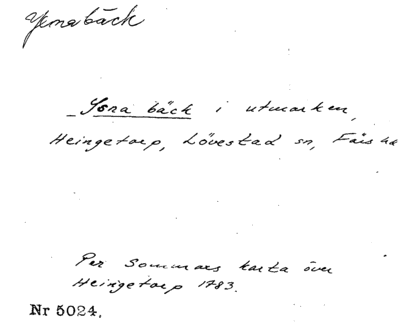 Ysnabäck
Ysna bäck i utmarken,
Heingetorp, Lövestad sn, Färs hd
Per Sommars karta över
Heingetorp 1783.
Nr 5024.